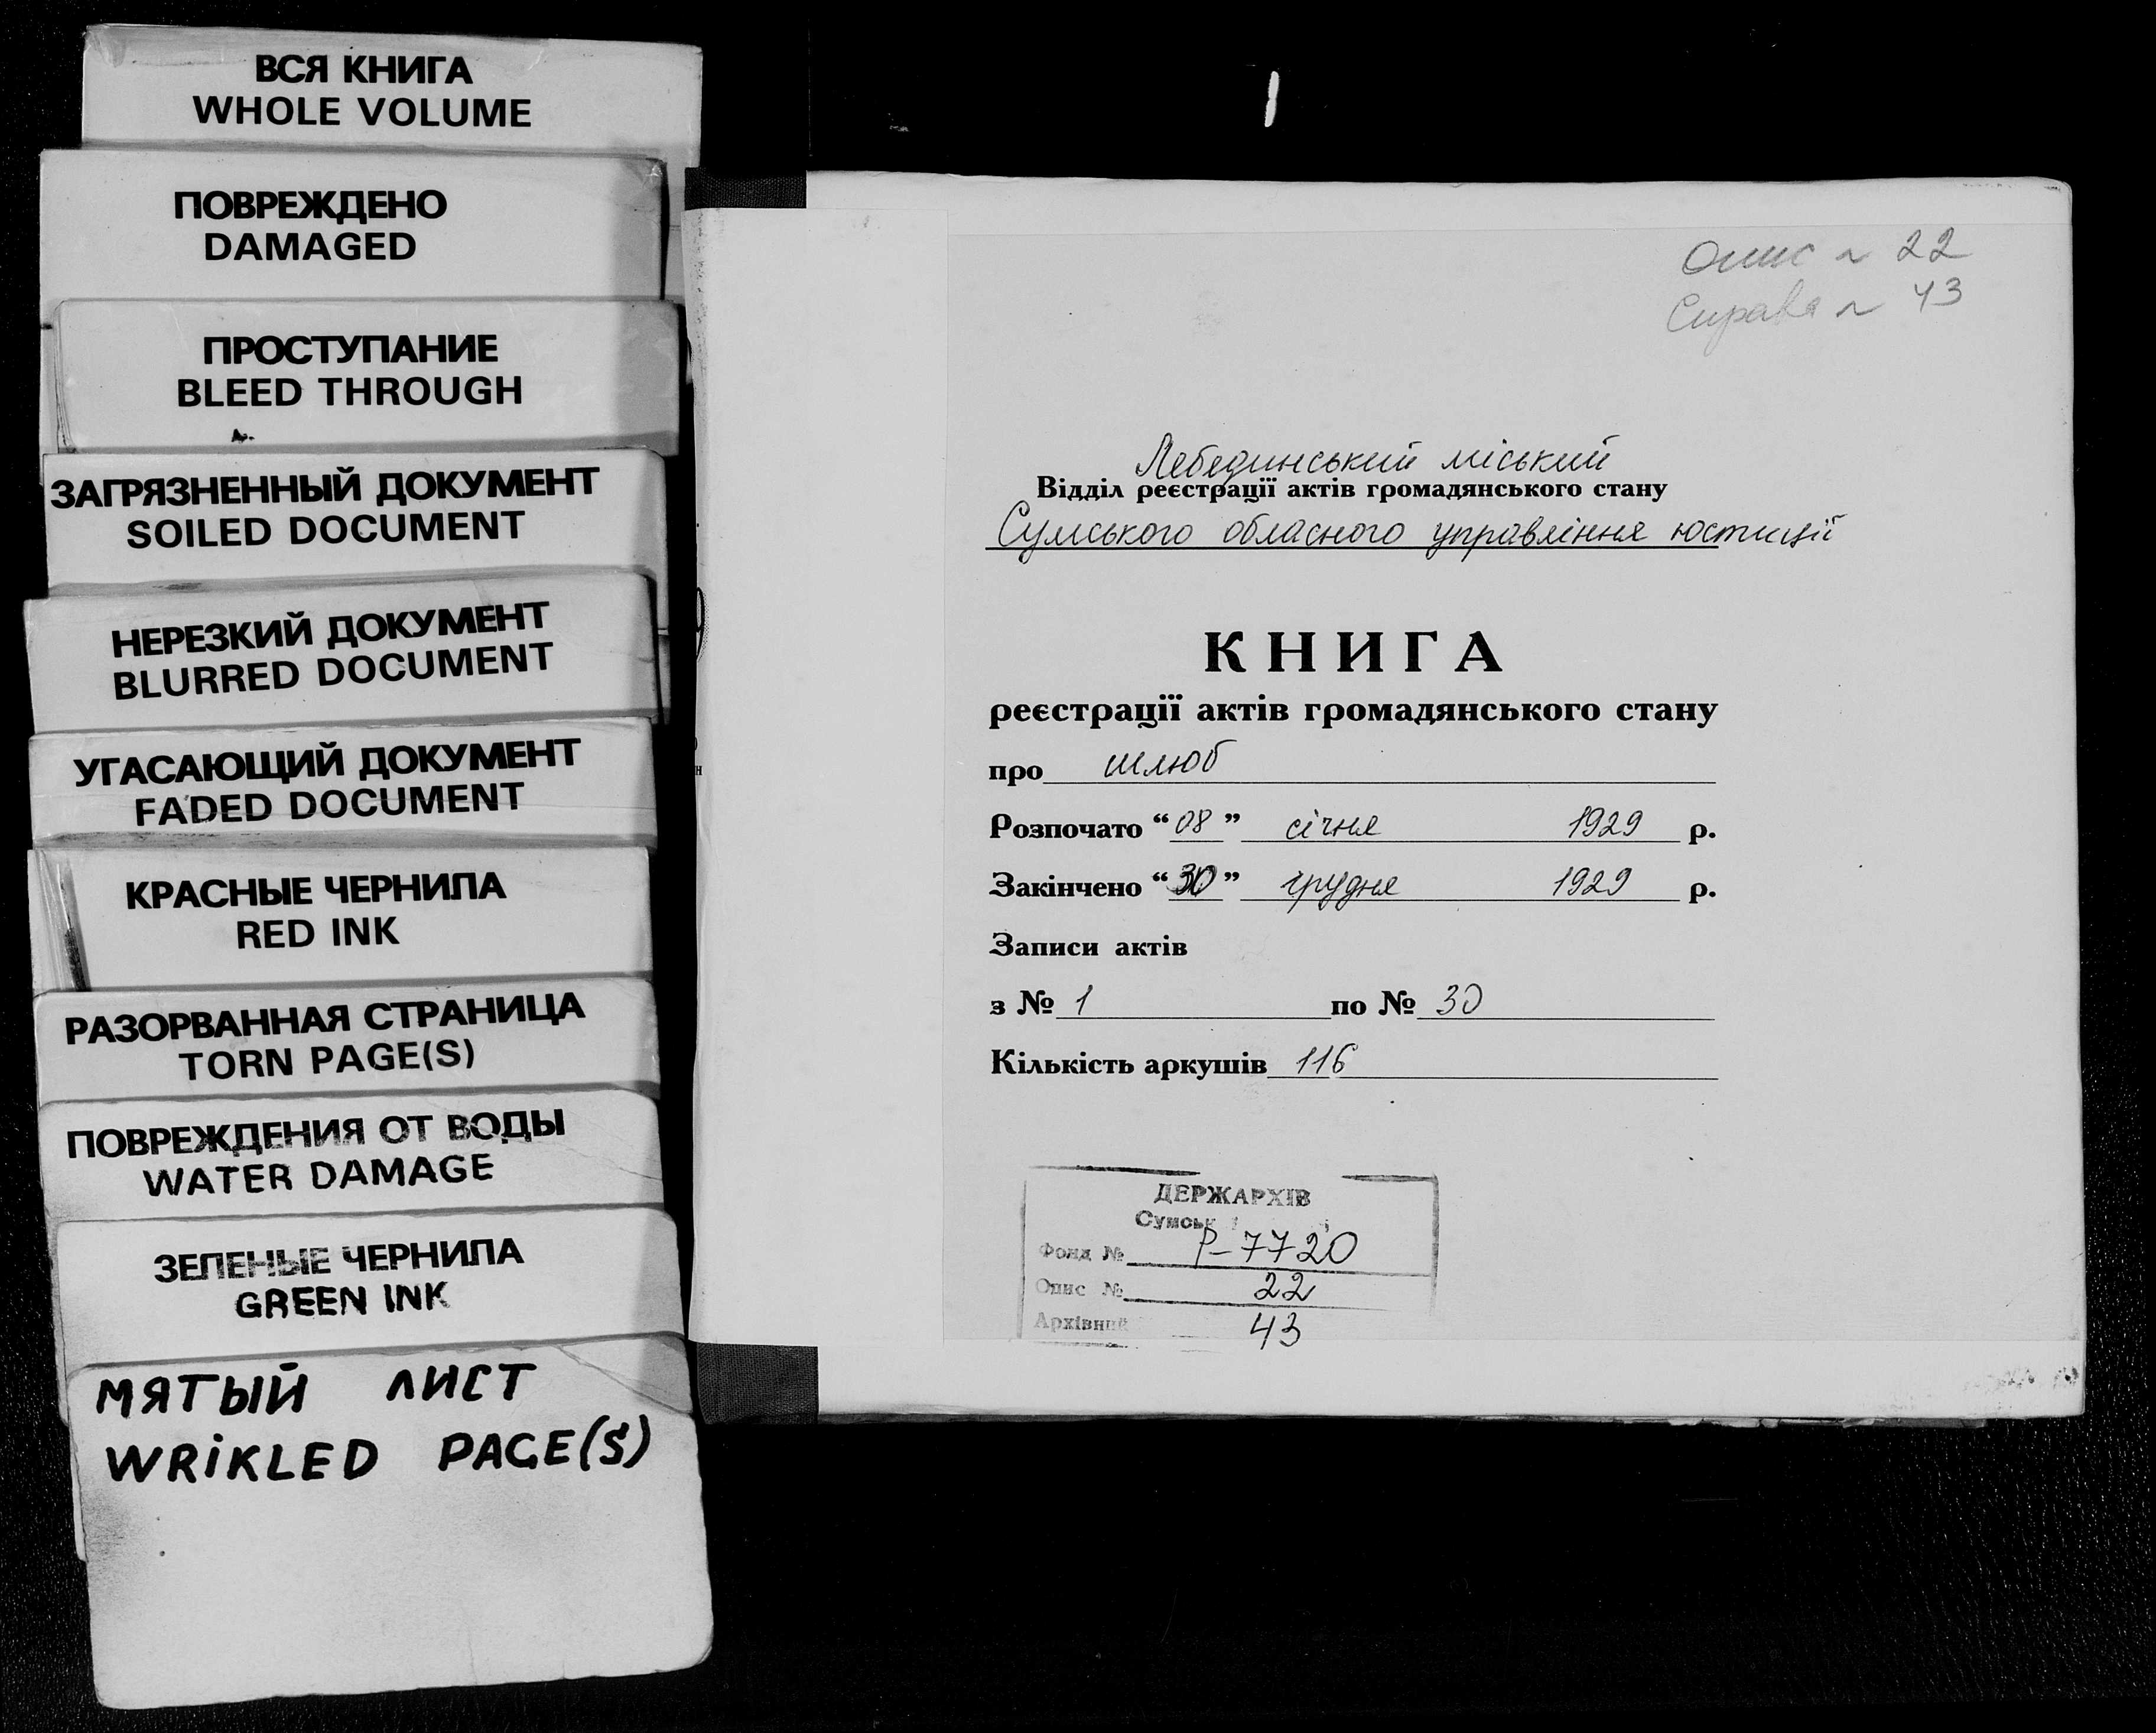 ВСЯ КНИГА
WHOLE VOLUME
ПОВРЕЖДЕНО
DAMAGED
ПРОСТУПАНИЕ
BLEED THROUGH
ЗАГРЯЗНЕННЫЙ ДОКУМЕНТ
SOILED DOCUMENT
НЕРЕЗКИЙ ДОКУМЕНТ
BLURRED DOCUMENT
УГАСАЮЩИЙ ДОКУМЕНТ
FADED DOCUMENT
КРАСНЫЕ ЧЕРНИЛА
RED INK
РАЗОРВАННАЯ СТРАНИЦА
TORN PAGE(S)
ПОВРЕЖДЕНИЯ ОТ ВОДЫ
WATER DAMAGE
ЗЕЛЕНЫЕ ЧЕРНИЛА
GREEN INK
МЯТЫЙ ЛИСТ
WRIKLED PAGE(S)
Опис № 22
Справа № 43
Лебединський міський
Відділ реєстрації актів громадянського стану
Сумського обласного управління юстиції
КНИГА
реєстрації актів громадянського стану
про шлюб
Розпочато “08” січня 1929 р.
Закінчено “30” грудня 1929 р.
Записи актів
з № 1 по № 30
Кількість аркушів 116
ДЕРЖАРХІВ
Фонд № Р-7720
Опис № 22
Архівний 43